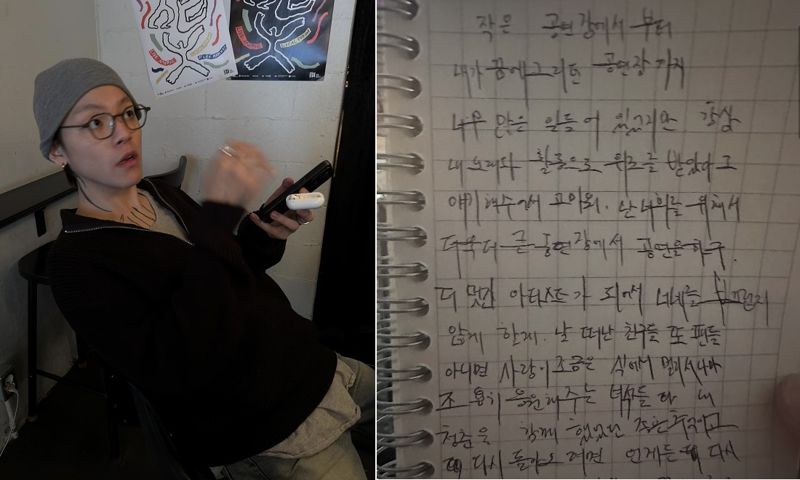 작은 공연장에서 부터
내가 꿈에그리던 공연장 까지
너무 많은 일들이 있었지만 항상
내 노래와 활동으로 위로를 받았다고
얘기해주어서 고마워. 난 너희를 위해서
더욱더 큰 공연장에서 공연을하구.
더 멋진 아티스트가 되어서 너네를
않게 할게. 날 떠난 친구들 또 팬들
아니면 사랑이 조금은 식어서 멀리서나마
조용히 응원해주는 녀석들 다 내
청춘을 함께 했었던 조은 추억이고
다시 돌아오려면 언제든 다시